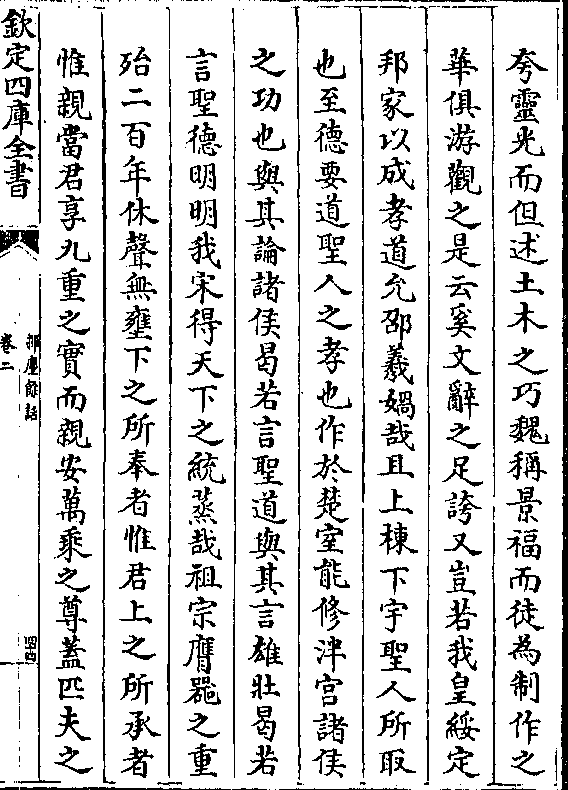 夸靈光而但述土木之巧魏稱景福而徒為制作之
華俱游觀之是云奚文辭之足誇又豈若我皇綏定
邦家以成孝道允邵羲媧哉且上棟下宇聖人所取
也至德要道聖人之孝也作於楚室能修泮宮諸侯
之功也與其論諸侯曷若言聖道與其言雄壯曷若
言聖德明明我宋得天下之統蒸哉祖宗膺器之重
殆二百年休聲無壅下之所奉者惟君上之所承者
惟親當君享九重之實而親安萬乘之尊蓋匹夫之
欽定四庫全書
揮麈餘話
卷二
四四